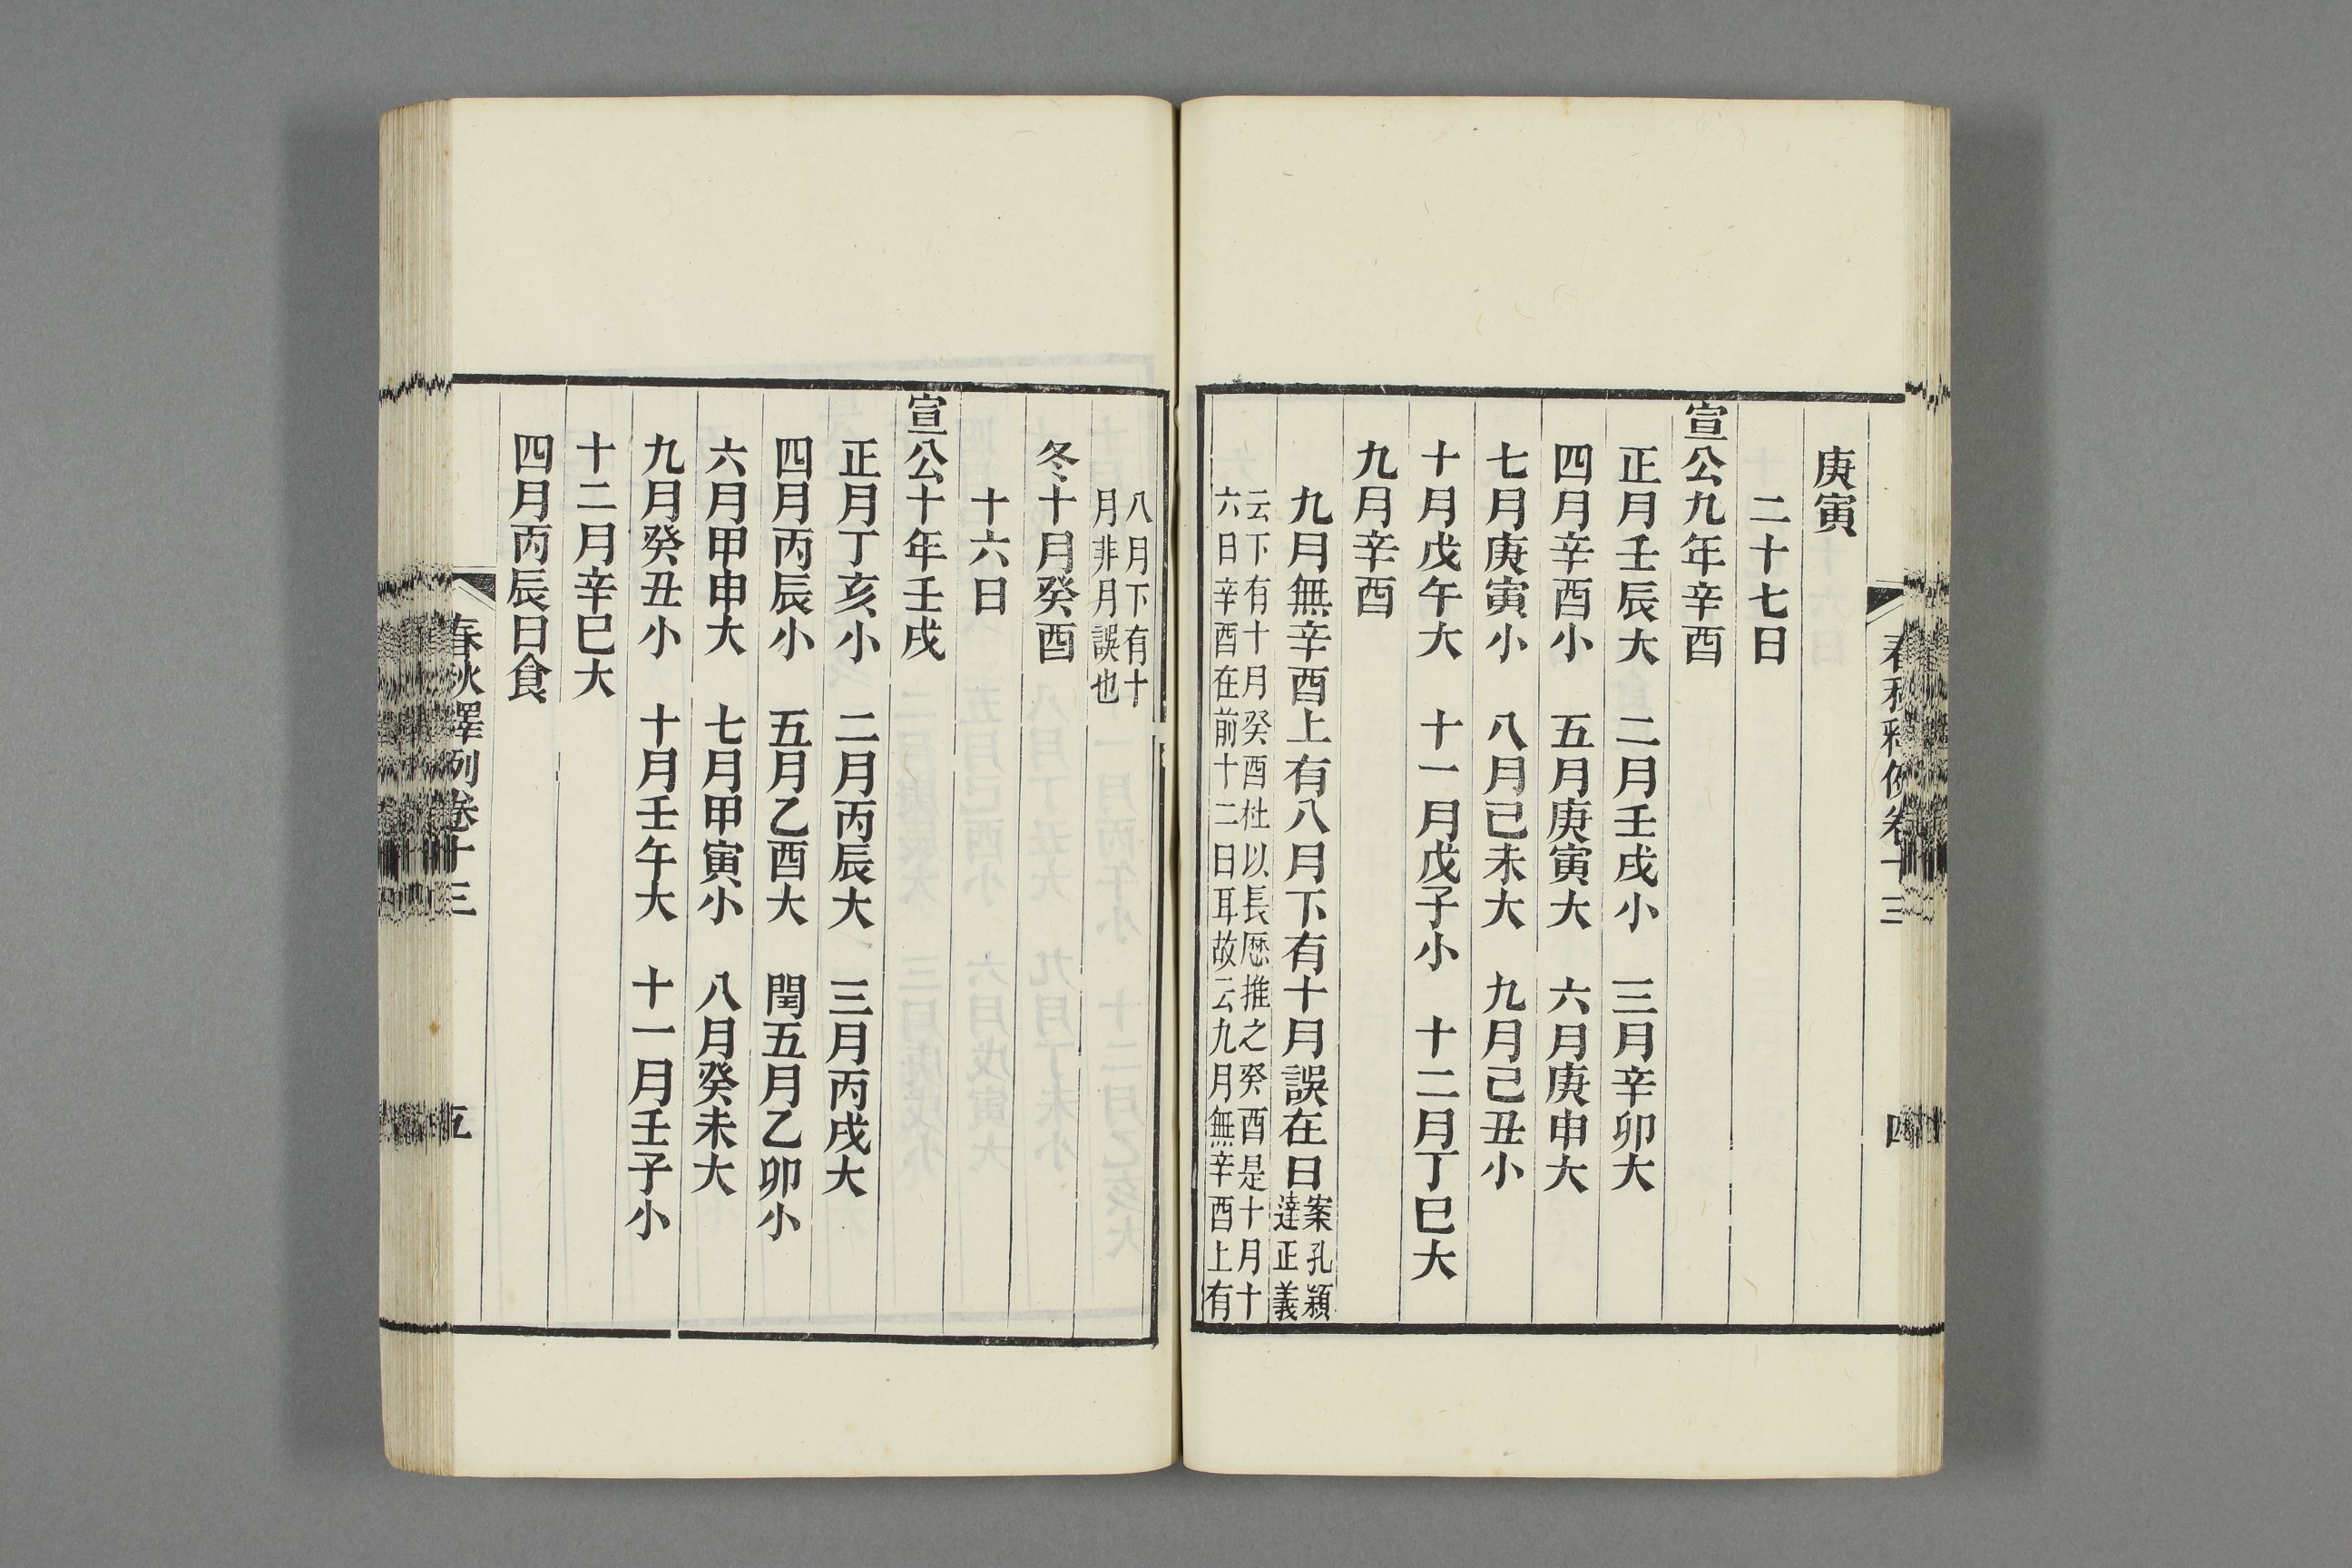 庚寅
二十七日
宣公九年辛酉
正月壬辰大　二月壬戌小　三月辛卯大
四月辛酉小　五月庚寅大　六月庚申大
七月庚寅小　八月己未大　九月己丑小
十月戊午大　十一月戊子小　十二月丁巳大
九月辛酉
九月無辛酉上有八月下有十月誤在日
案孔穎
達正義
云下有十月癸酉杜以長厯推之癸酉是十月十
六日辛酉在前十二日耳故云九月無辛酉上有
四
八月下有十
月非月誤也
冬十月癸酉
十六日
宣公十年壬戌
正月丁亥小　二月丙辰大　三月丙戌大
四月丙辰小　五月乙酉大　閏五月乙卯小
六月甲申大　七月甲寅小　八月癸未大
九月癸丑小　十月壬午大　十一月壬子小
十二月辛巳大
四月丙辰日食
春秋釋例卷十三
五